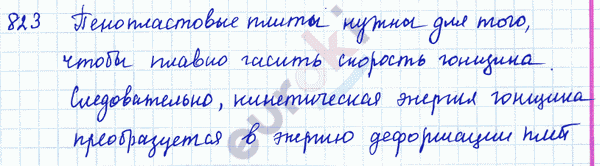 823 Пенопластовые плиты нужны для того,
чтобы плавно гасить скорость гонщика.
Следовательно, кинетическая энергия гонщика
преобразуется в энергию деформации плит